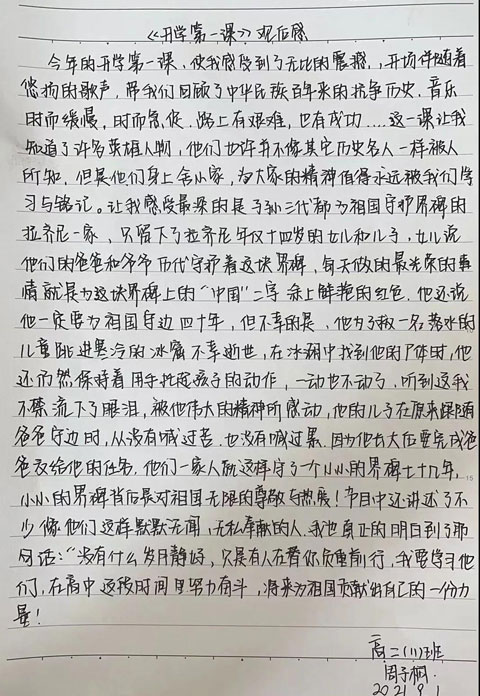 《开学第一课》观后感
今年的开学第一课，使我感受到了无比的震撼，开场伴随着
悠扬的歌声，带我们回顾了中华民族百年来的抗争历史，音乐
时而缓慢，时而急促，路上有艰难，也有成功....这一课让我
知道了许多英雄人物，他们也许并不像其它历史名人一样被人
所知，但是他们身上舍小家，为大家的精神值得永远被我们学
习与铭记。让我感受最深的是了孙三代都为祖国守护界碑的
拉齐尼一家，只留下了拉齐尼年仅十四岁的女儿和儿子，女儿说
他们的爸爸和爷爷历代守护着这块界碑，每天做的最光荣的事
情就是为这块界碑上的“中国”二字涂上鲜艳的红色，他还说
他一定要为祖国守边四十年，但不幸的是，他为了救一名落水的
儿童跳进寒冷的冰窟不幸逝世，在冰湖中找到他的尸体时，他
还而然保持着用手托底孩子的动作，一动也不动了，听到这我
不禁流下了眼泪，被他伟大的精神所感动，他的儿子在原来跟随
爸爸守边时，从没有喊过苦，也没有喊过累，因为他长大后要完成爸
爸交给他的任务，他们一家人就这样守了一个小小的界碑七十几年，
小小的界碑背后是对祖国无限的尊敬与热爱！节目中还讲述了不
少像他们这样默默无闻，无私奉献的人，我也真正的明白到了那
句话：“没有什么岁月静好，只是有人在替你负重前行，我要学习他
们，在高中这段时间里努力奋斗，将来为祖国贡献出自己的一份力
量！
高二（11）班
周子桐
2021.9.1